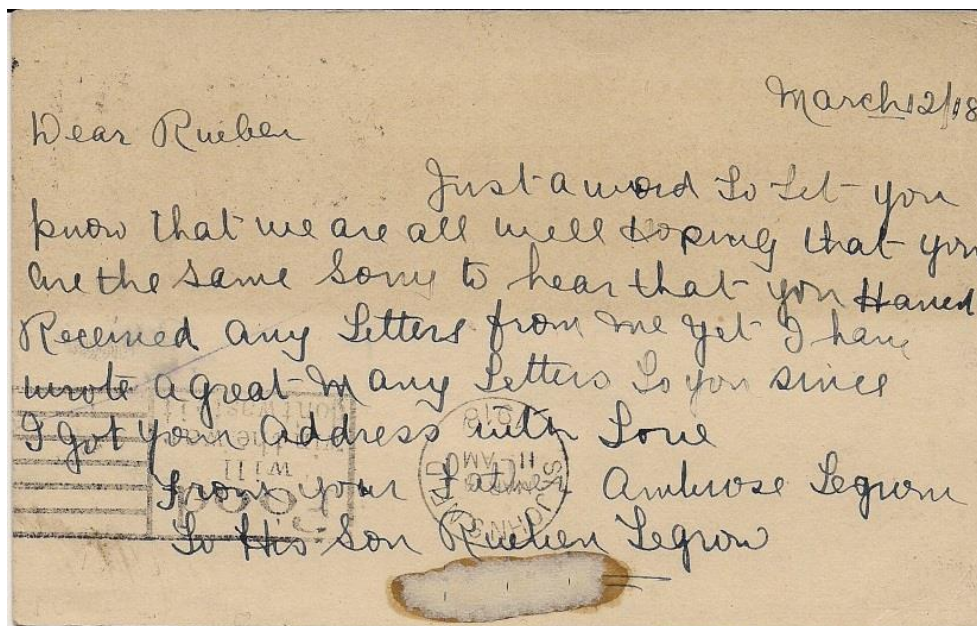 March 12/18
Dear Rueben
Just a word To Let you
know that we are all well Hoping that you
are the same Sorry to hear that you Havent
Received any Letters from me yet I have
wrote a great Many Letters To you since
I got your Address with Love
From your Father Ambrose Legrow
To His Son Rueben Legrow
Food
will
win the war
dont waste it
ST. JOHN'S
11 - AM